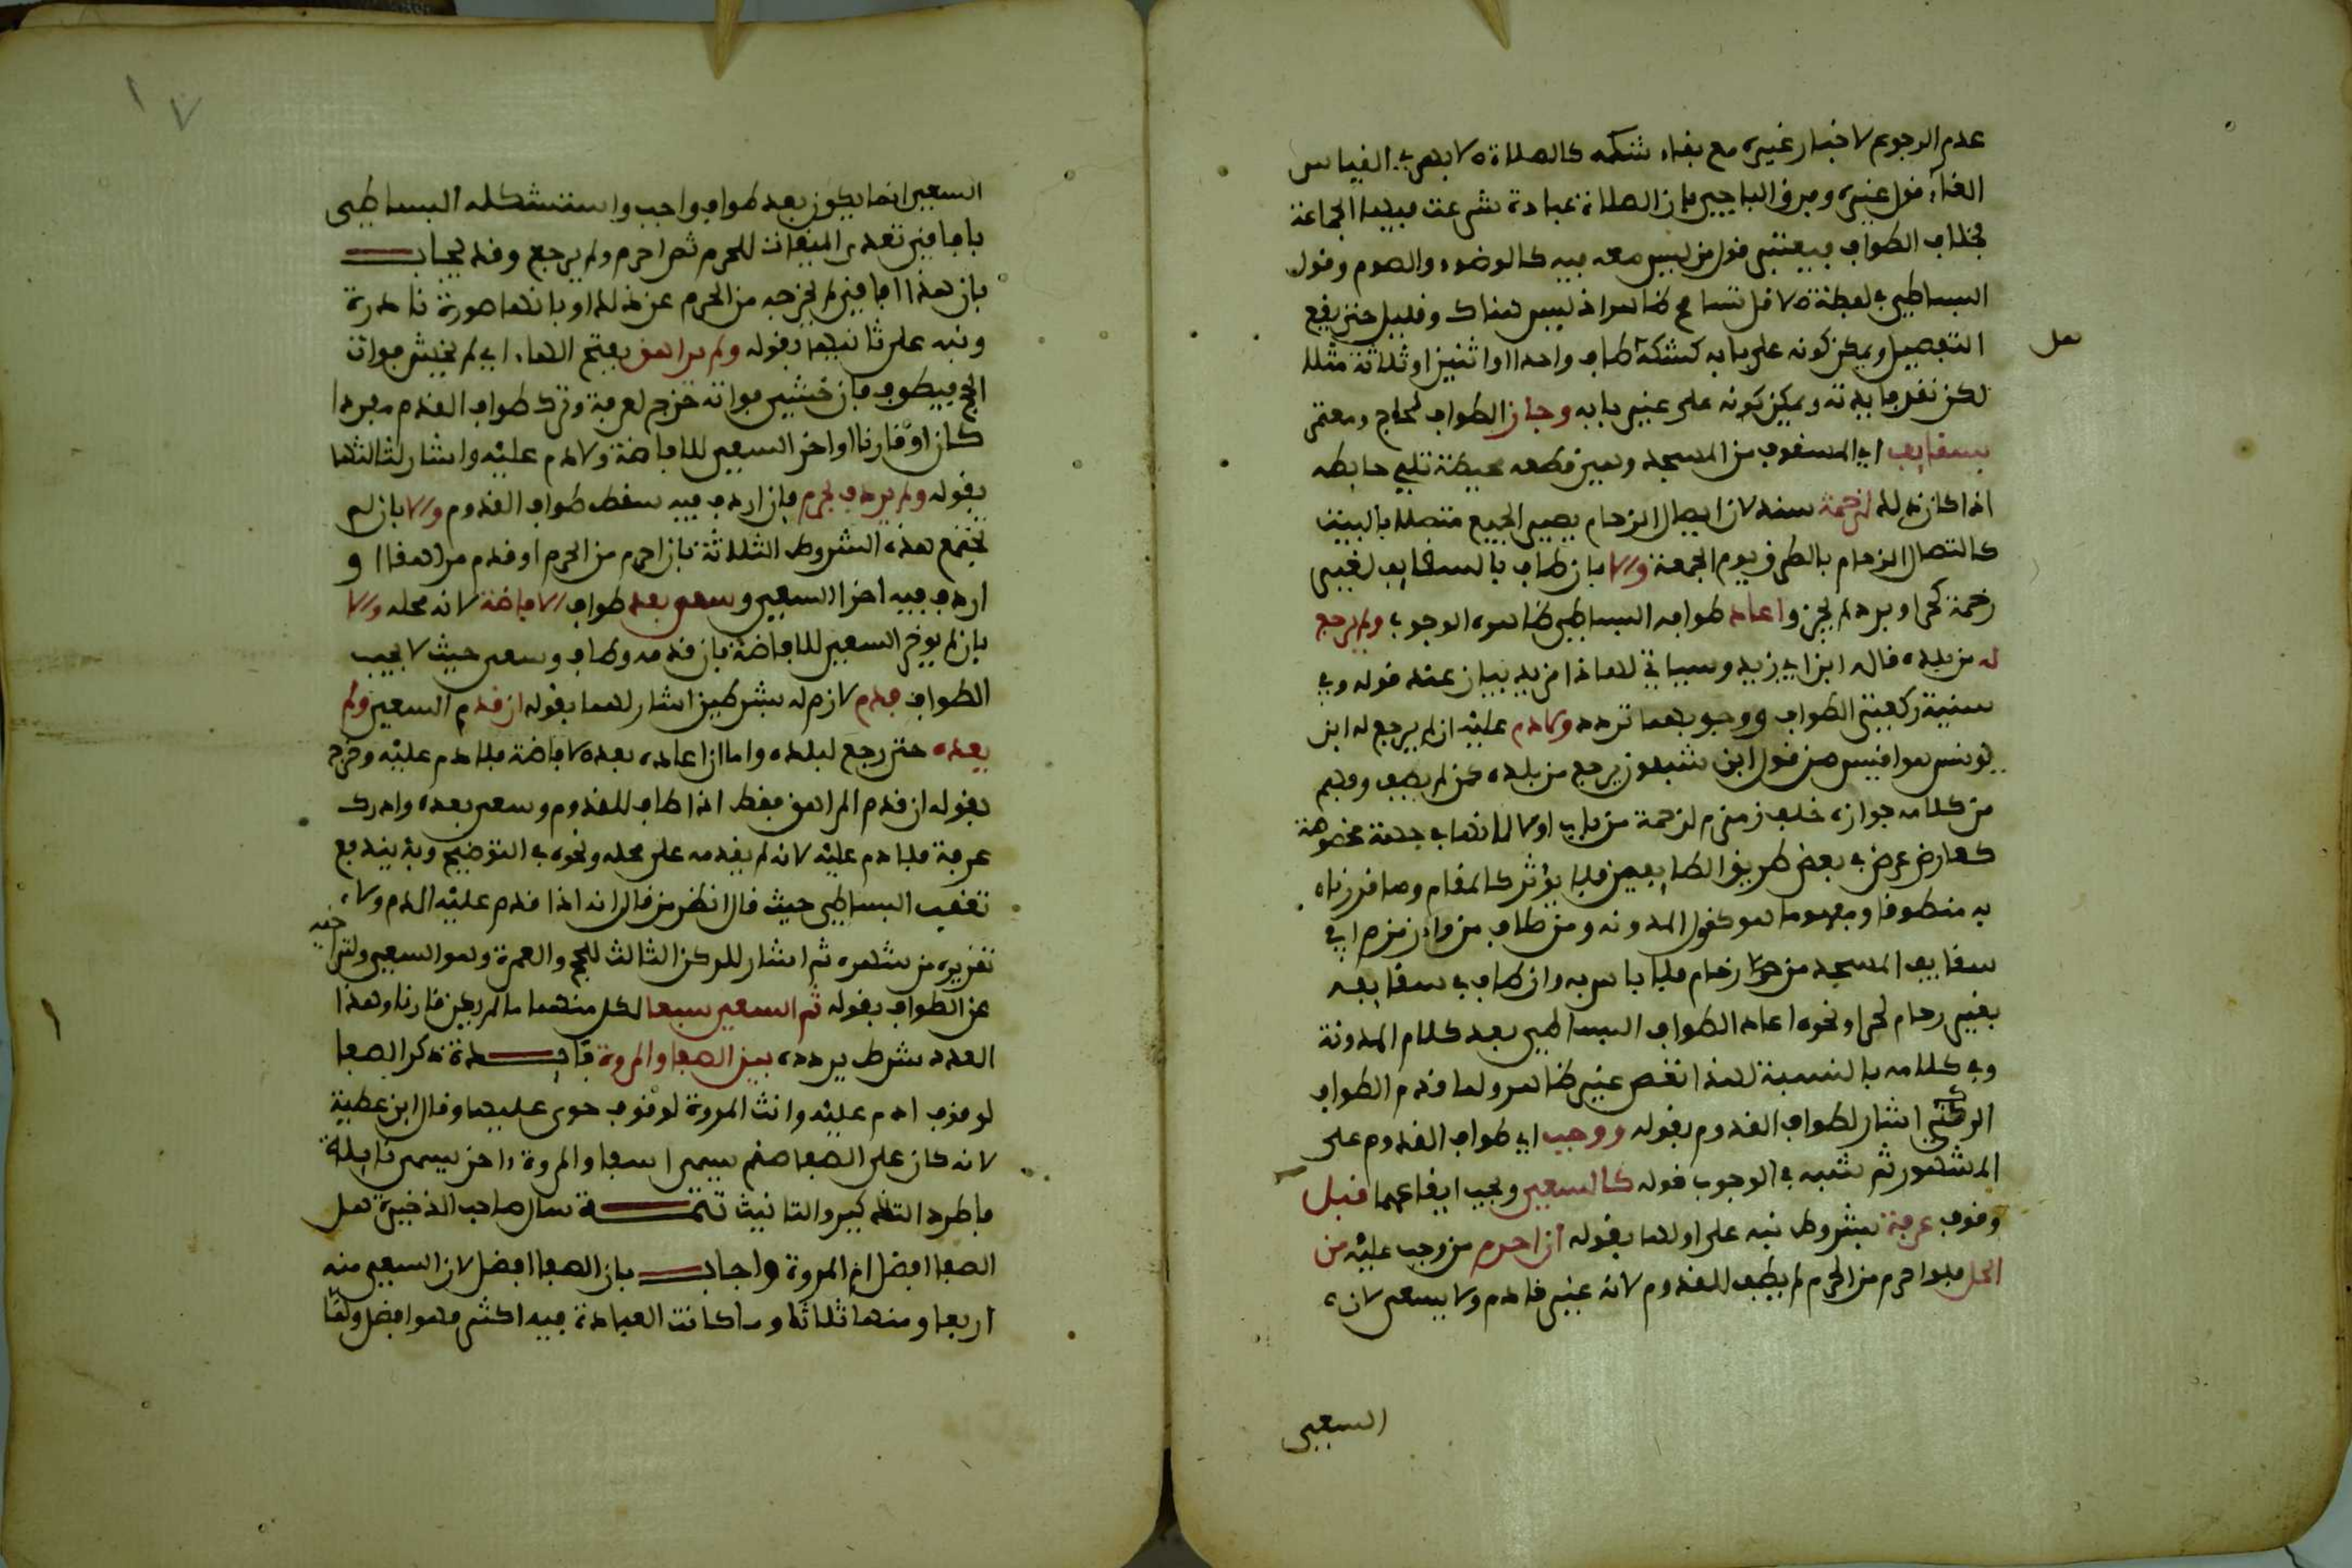 عدم الرجوع لاخبار غيره مع بقاء شكه كالصلاة لابهري القياس
الغاء قول غيره وفرق الباجي بان الصلاة عبادة شرعت فيها الجماعة
بخلاف الطواف فيعتبر قول من ليس معه فيه كالوضوء والصوم وقول
البساطي في لفظة تسامح ظاهر اذ ليس هناك وقليل حتى يقع
التفصيل ويمكن كونه على بابه كشكه اطاف واحدا او اثنين او ثلاثة مثلا
لكن تقل فايدته ويمكن كونه على غير بابه وجاز الطواف لحاج ومعتمر
بسقايف اي المسقوف من المسجد وهي قطعه محيطة تلي حايطه
اذا كان ذلك لزحمة سند لان اتصال الزحام يصير الجميع متصلا بالبيت
كاتصال الزحام بالطرق يوم الجمعة والا بان طاف بالسقايف لغير
زحمة كحر او برد لم يجز واعاد طوافه البساطي ظاهره الوجوب ولم يرجع
له من بلده قاله ابن ابي زيد وسياتي لهذا مزيد بيان عند قوله وفي
سنية ركعتي الطواف ووجوبهما تردد ولا دم عليه ان لم يرجع له ابن
يونس هو اقيس من قول ابن شبلون يرجع من بلده كمن لم يطف وفهم
من كلامه جوازه خلف زمزم لزحمة من باب اولى لانها في جهة مخصوصة
كعارض عرض في بعض طريق الطايفين فلا يؤثر كالمقام وما قررناه
به منطوقا ومفهوما هو كقول المدونه ومن طاف من وراء زمزم او في
سقايف المسجد من زحام فلا باس به وان طاف في سقايفه
بغير زحام لحر او نحوه اعاد الطواف البساطي بعد كلام المدونة
وفي كلامه بالنسبة لهذا نقص غير ظاهر ولما قدم الطواف
الركني اشار لطواف القدوم بقوله ووجب اي طواف القدوم على
المشهور ثم شبه في الوجوب قوله كالسعي ويجب ايقاعهما قبل
وقوف عرفة بشروط نبه على اولها بقوله ان احرم من وجب عليه من
الحل فلو احرم من الحرم لم يطف للقدوم لانه غير قادم ولا يسعى لان
السعي
هل
السعي انما يكون بعد طواف واجب واستشكله البساطي
بافاقي تعدى الميقات للحرم ثم احرم ولم يرجع وقد يجاب
بان هذا افاقي لم يخرجه من الحرم عن ذلك او بانها صورة نادرة
ونبه على ثانيها بقوله ولم يراهق بفتح الهاء اي لم يخش فوات
الحج فيطوف فان خشي فواته خرج لعرفة وترك طواف القدوم مفردا
كان او قارنا واخر السعي للافاضة ولا دم عليه واشار لثالثها
بقوله ولم يردف بحرم فان اردف فيه سقط طواف القدوم والا بان لم
تجتمع هذه الشروط الثلاثة بان احرم من الحرم او قدم مراهقا او
اردف فيه اخر السعي وسعى بعد طواف الافاضة لانه محله والا
بان لم يؤخر السعي للافاضة بان قدمه وطاف وسعى حيث لا يجب
الطواف فدم لازم له بشرطين اشار لهما بقوله ان قدم السعي ولم
يعده حتى رجع لبلده واما ان اعاده بعد الافاضة فلا دم عليه وخرج
بقوله ان قدم المراهق فقط اذا طاف للقدوم وسعى بعده وادرك
عرفة فلا دم عليه لانه لم يقدمه على محله ونحوه في التوضيح وبه يندفع
تعقب البساطي حيث قال انظر من قال انه اذا قدم عليه الدم ولا
تقريره من شهره ثم اشار للركن الثالث للحج والعمرة وهو السعي ولتراخيه
عن الطواف بقوله ثم السعي سبعا لكل منهما ما لم يكن قارنا وهذا
العدد شرط يردده بين الصفا والمروة فايـدة ذكر الصفا
لوقوف ادم عليه وانث المروة لوقوف حوى عليها وقال ابن عطية
لانه كان على الصفا صنم يسمى اسفا والمروة اخر يسمى نايلة
فاطرد التذكير والتانيث تتمـة سال صاحب الذخيرة هل
الصفا افضل ام المروة واجاب بان الصفا افضل لان السعي منه
اربعا ومنها ثلاثا وما كانت العبادة فيه اكثر فهو افضل ولما